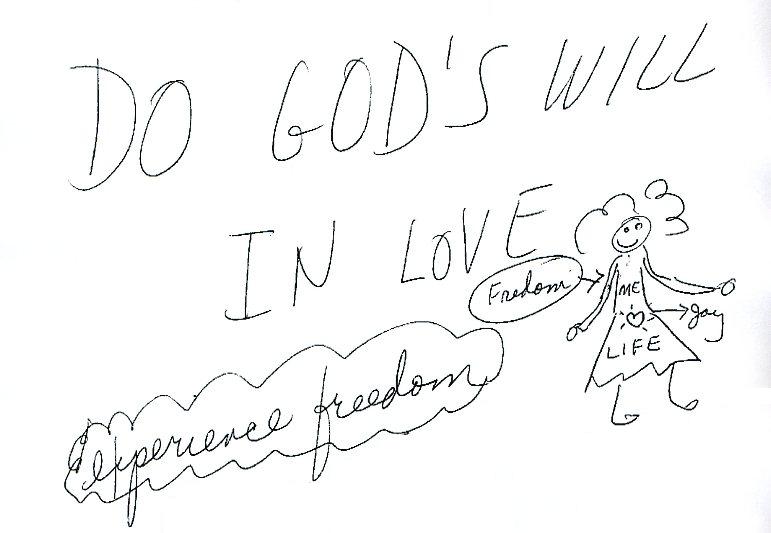 DO GOD'S WILL
IN LOVE
Freedom
ME
Joy
LIFE
experience freedom